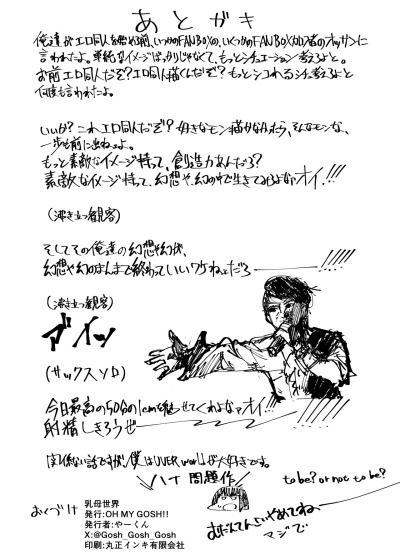 あとがき
俺達がエロ同人を始める前、いつかのFANBOXの、いくつかのFANBOX加入者のオッサンに
言われたよ。単純なイメージばっかりじゃなくて、もっとシチュエーション考えろよと。
お前エロ同人だぞ?エロ同人描くんだぞ?もっとシコれるシチュ考えろよと
何度も言われたよ。
いいか?これエロ同人だぞ?好きなモン描かなかったら、そんなモンな、
一歩も前に出ねぇよ。
もっと素敵なイメージ持って。創造力あんだろ?
素敵なイメージ持って、幻想や、幻の中で生きてみろよなァオイ!!!
(沸き立つ観客)
そしてその俺達の幻想や幻が、
幻想や幻のまんまで終わっていいワケねぇだろ!!!!
(沸き立つ観客)
アイッ
(サックスソロ)
今日最高の50分の1cm魅せてくれよなァオイ!!!
射精しきろうぜ
関係ない話ですが、僕はUVERworldが大好きです。
問題作
to be? or not to be?
おくづけ
乳母世界
発行:OH MY GOSH!!
発行者:やーくん
X:@Gosh_Gosh_Gosh
印刷:丸正インキ有限会社
むだんてんさいやめてね
マジで